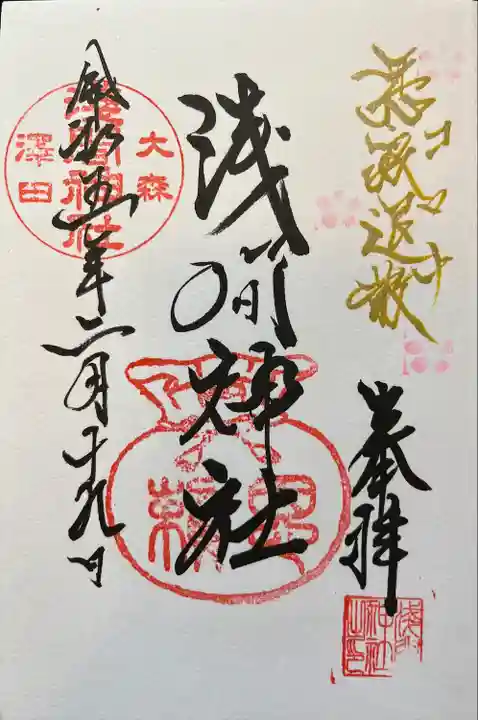 悪疫退散
コロナ
奉拝
浅間神社之印
浅間神社
大森
浅間神社
澤田
令和五年二月十九日